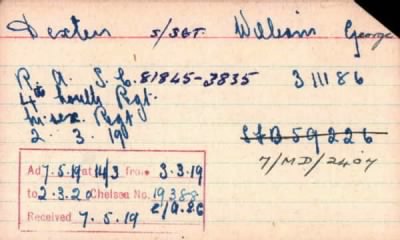 Dexter S/SGT. William George
R. A. S.C. 81845-3835 3 11 1 86
4th Regt.
Regt.
2 . 3 . 19 S/B 59226
7/MD/2407
Ad 7.5.19 at 14/3 from 3.3.19
to 2.3.20 Chelsea No. 19388
Received 7.5.19